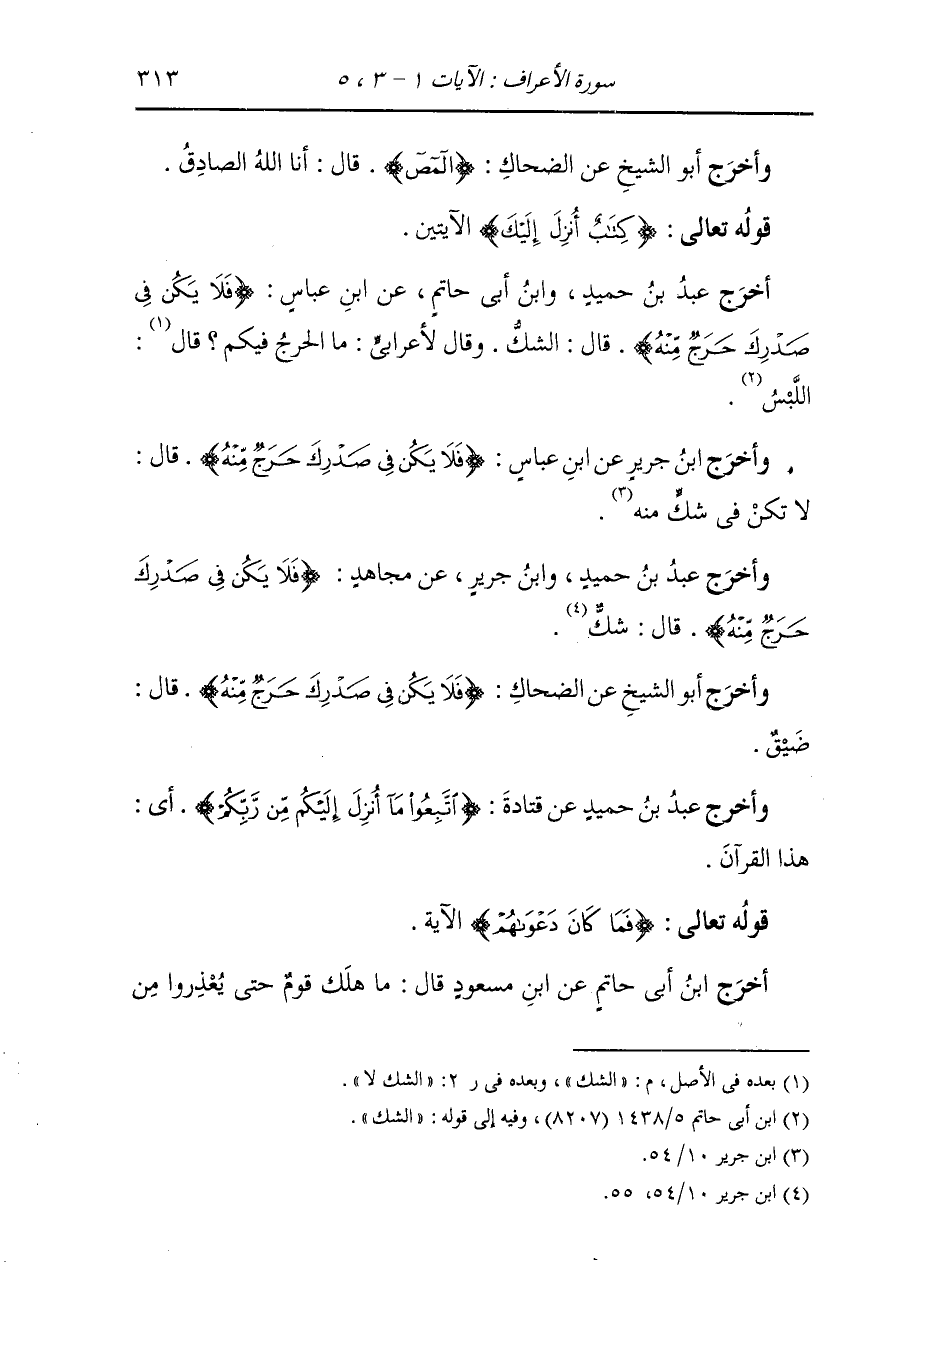 سورة الأعراف : الآيات ١ - ٣ ، ٥ ٣١٣
وأخرَج أبو الشيخِ عن الضحاكِ : ﴿الٓمٓصٓ﴾ . قال : أنا اللهُ الصادِقُ .
قولُه تعالى : ﴿كِتَٰبٌ أُنزِلَ إِلَيْكَ﴾ الآيتين .
أخرَج عبدُ بنُ حميدٍ ، وابنُ أبى حاتمٍ ، عن ابنِ عباسٍ : ﴿فَلَا يَكُن فِى
صَدْرِكَ حَرَجٌ مِّنْهُ﴾ . قال : الشكُّ . وقال لأعرابىٍّ : ما الحرجُ فيكم ؟ قال(١) :
اللَّبْسُ(٢) .
وأخرَج ابنُ جريرٍ عن ابنِ عباسٍ : ﴿فَلَا يَكُن فِى صَدْرِكَ حَرَجٌ مِّنْهُ﴾ . قال :
لا تكنْ فى شكٍّ منه(٣) .
وأخرَج عبدُ بنُ حميدٍ ، وابنُ جريرٍ ، عن مجاهدٍ : ﴿فَلَا يَكُن فِى صَدْرِكَ
حَرَجٌ مِّنْهُ﴾ . قال : شكٌّ(٤) .
وأخرَج أبو الشيخِ عن الضحاكِ : ﴿فَلَا يَكُن فِى صَدْرِكَ حَرَجٌ مِّنْهُ﴾ . قال :
ضَيْقٌ .
وأخرج عبدُ بنُ حميدٍ عن قتادةَ : ﴿ٱتَّبِعُوا۟ مَآ أُنزِلَ إِلَيْكُم مِّن رَّبِّكُمْ﴾ . أى :
هذا القرآنَ .
قولُه تعالى : ﴿فَمَا كَانَ دَعْوَىٰهُمْ﴾ الآية .
أخرَج ابنُ أبى حاتمٍ عن ابنِ مسعودٍ قال : ما هلَك قومٌ حتى يُعْذِروا مِن
(١) بعده فى الأصل ، م : « الشك » ، وبعده فى ر ٢: « الشك لا » .
(٢) ابن أبى حاتم ١٤٣٨/٥ (٨٢٠٧) ، وفيه إلى قوله : « الشك » .
(٣) ابن جرير ٥٤/١٠.
(٤) ابن جرير ٥٤/١٠، ٥٥.